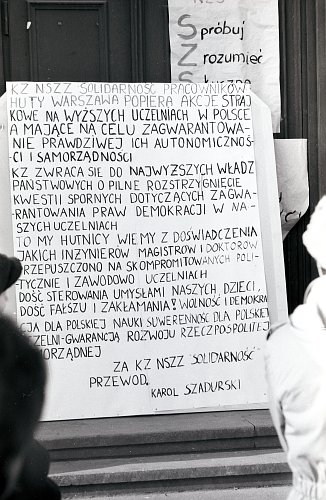 Spróbuj
Zrozumieć
KZ NSZZ SOLIDARNOŚĆ PRACOWNIKÓW
HUTY WARSZAWA POPIERA AKCJE STRAJ
KOWE NA WYŻSZYCH UCZELNIACH W POLSCE
A MAJĄCE NA CELU ZAGWARANTOWA-
NIE PRAWDZIWEJ ICH AUTONOMICZNOŚ-
CI I SAMORZĄDNOŚCI
KZ ZWRACA SIĘ DO NAJWYŻSZYCH WŁADZ
PAŃSTWOWYCH O PILNE ROZSTRZYGNIĘCIE
KWESTII SPORNYCH DOTYCZĄCYCH ZAGWA-
RANTOWANIA PRAW DEMOKRACJI W NA-
SZYCH UCZELNIACH
TO MY HUTNICY WIEMY Z DOŚWIADCZENIA
JAKICH INŻYNIERÓW MAGISTRÓW I DOKTORÓW
PRZEPUSZCZONO NA SKOMPROMITOWANYCH POLI-
TYCZNIE I ZAWODOWO UCZELNIACH
DOŚĆ STEROWANIA UMYSŁAMI NASZYCH DZIECI,
DOŚĆ FAŁSZU I ZAKŁAMANIA! WOLNOŚĆ I DEMOKRA
CJA DLA POLSKIEJ NAUKI SUWERENNOŚĆ DLA POLSKIEJ
UCZELNI-GWARANCJĄ ROZWOJU RZECZPOSPOLITEJ
ORZĄDNEJ
ZA KZ NSZZ "SOLIDARNOŚĆ"
PRZEWOD.
KAROL SZADURSKI